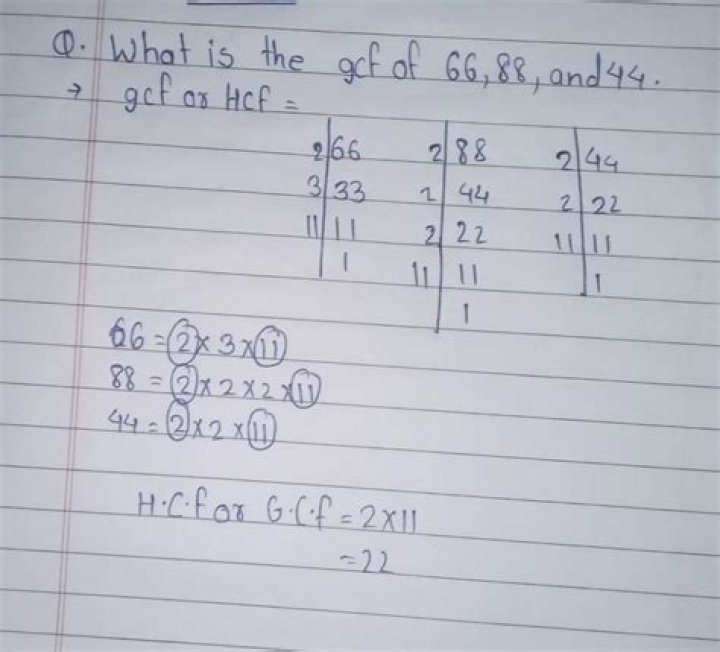 Q. What is the gcf of 66, 88, and 44.
→ gcf or Hcf =
2|66 2|88 2|44
3|33 2|44 2|22
11|11 2|22 11|11
1 11|11 1
1
66 = 2 × 3 × 11
88 = 2 × 2 × 2 × 11
44 = 2 × 2 × 11
H.C.f or G.C.f = 2 × 11
= 22